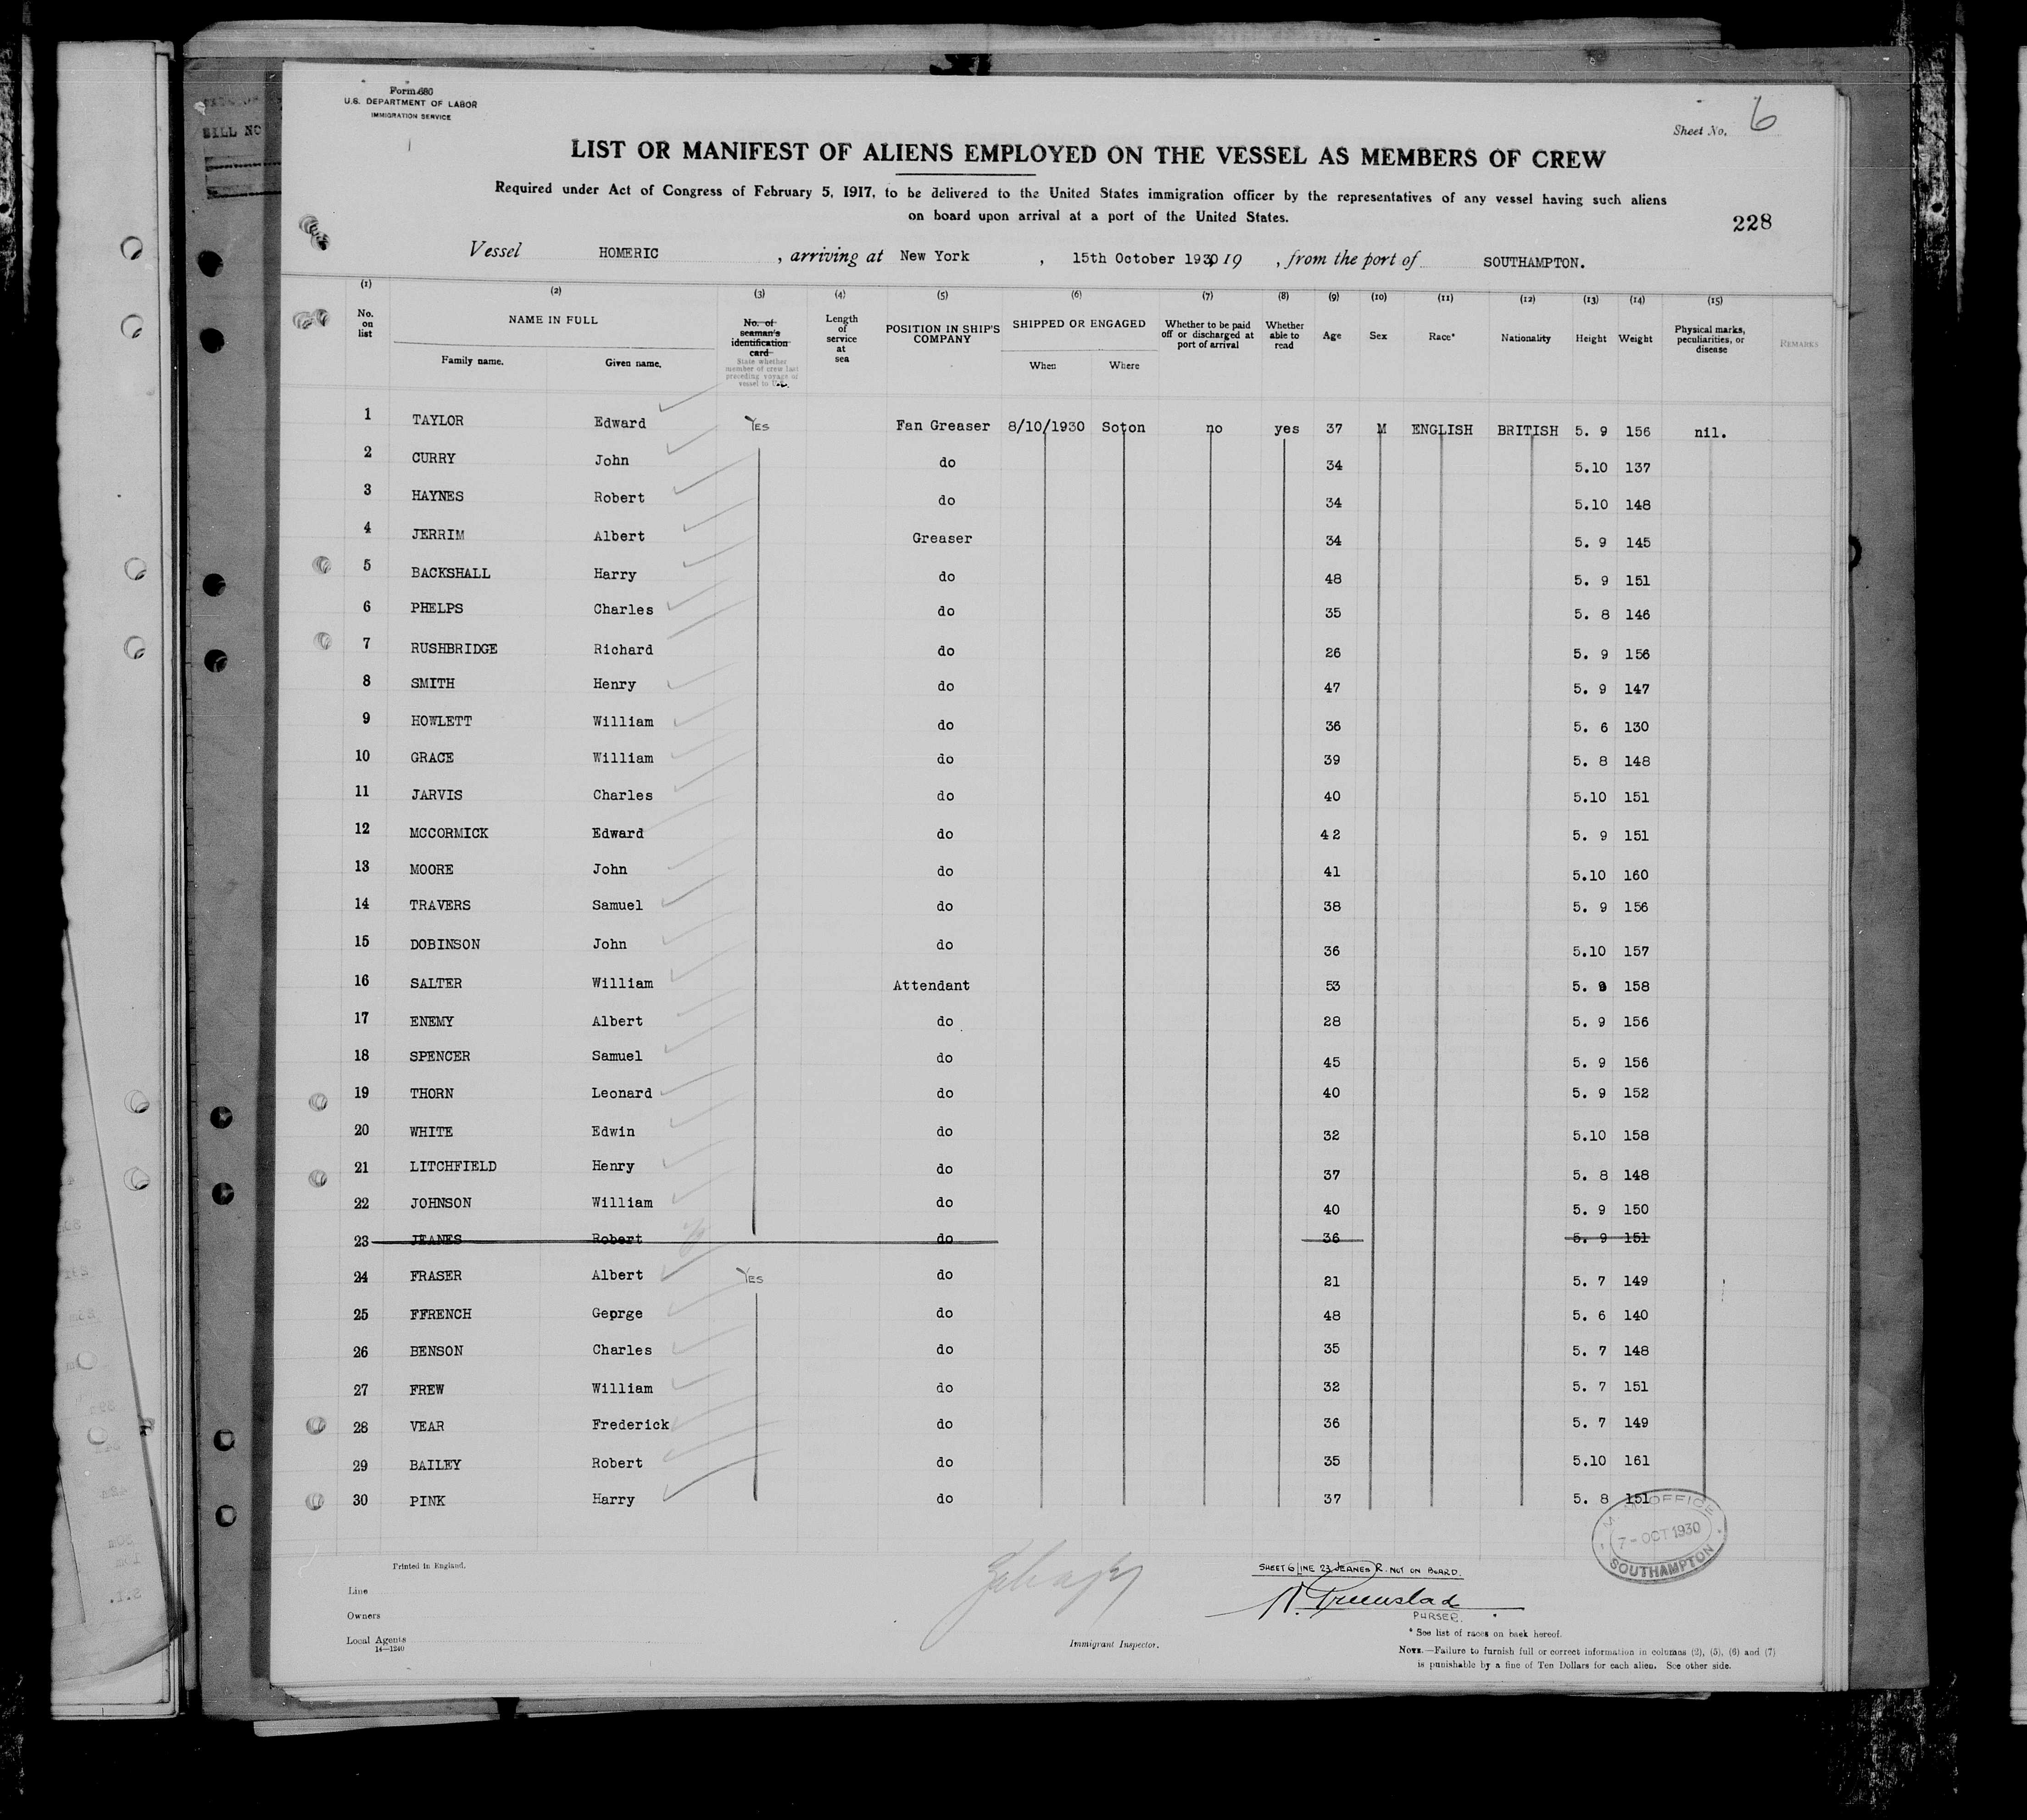 BILL NO
Form 680
U.S. DEPARTMENT OF LABOR
IMMIGRATION SERVICE
Sheet No. 6
LIST OR MANIFEST OF ALIENS EMPLOYED ON THE VESSEL AS MEMBERS OF CREW
Required under Act of Congress of February 5, 1917, to be delivered to the United States immigration officer by the representatives of any vessel having such aliens
on board upon arrival at a port of the United States.
228
Vessel HOMERIC , arriving at New York , 15th October 1930, 19 , from the port of SOUTHAMPTON.
(1) (2) (3) (4) (5) (6) (7) (8) (9) (10) (11) (12) (13) (14) (15)
No. on list NAME IN FULL Family name. Given name. No. of seaman's identification card State whether member of crew last preceding voyage of vessel to U.S. Length of service at sea POSITION IN SHIP'S COMPANY SHIPPED OR ENGAGED When Where Whether to be paid off or discharged at port of arrival Whether able to read Age Sex Race* Nationality Height Weight Physical marks, peculiarities, or disease REMARKS
1 TAYLOR Edward YES Fan Greaser 8/10/1930 Soton no yes 37 M ENGLISH BRITISH 5. 9 156 nil.
2 CURRY John do 34 5.10 137
3 HAYNES Robert do 34 5.10 148
4 JERRIM Albert Greaser 34 5. 9 145
5 BACKSHALL Harry do 48 5. 9 151
6 PHELPS Charles do 35 5. 8 146
7 RUSHBRIDGE Richard do 26 5. 9 156
8 SMITH Henry do 47 5. 9 147
9 HOWLETT William do 36 5. 6 130
10 GRACE William do 39 5. 8 148
11 JARVIS Charles do 40 5.10 151
12 MCCORMICK Edward do 42 5. 9 151
13 MOORE John do 41 5.10 160
14 TRAVERS Samuel do 38 5. 9 156
15 DOBINSON John do 36 5.10 157
16 SALTER William Attendant 53 5. 9 158
17 ENEMY Albert do 28 5. 9 156
18 SPENCER Samuel do 45 5. 9 156
19 THORN Leonard do 40 5. 9 152
20 WHITE Edwin do 32 5.10 158
21 LITCHFIELD Henry do 37 5. 8 148
22 JOHNSON William do 40 5. 9 150
23 JEANES Robert do 36 5. 9 151
24 FRASER Albert YES do 21 5. 7 149
25 FFRENCH Geprge do 48 5. 6 140
26 BENSON Charles do 35 5. 7 148
27 FREW William do 32 5. 7 151
28 VEAR Frederick do 36 5. 7 149
29 BAILEY Robert do 35 5.10 161
30 PINK Harry do 37 5. 8 151
OFFICE
7-OCT 1930
SOUTHAMPTON
Printed in England.
SHEET 6 LINE 23 JEANES R. NOT ON BOARD.
Line
Owners
PURSER.
Local Agents
14—1240
Immigrant Inspector.
* See list of races on back hereof.
NOTE.—Failure to furnish full or correct information in columns (2), (5), (6) and (7)
is punishable by a fine of Ten Dollars for each alien. See other side.